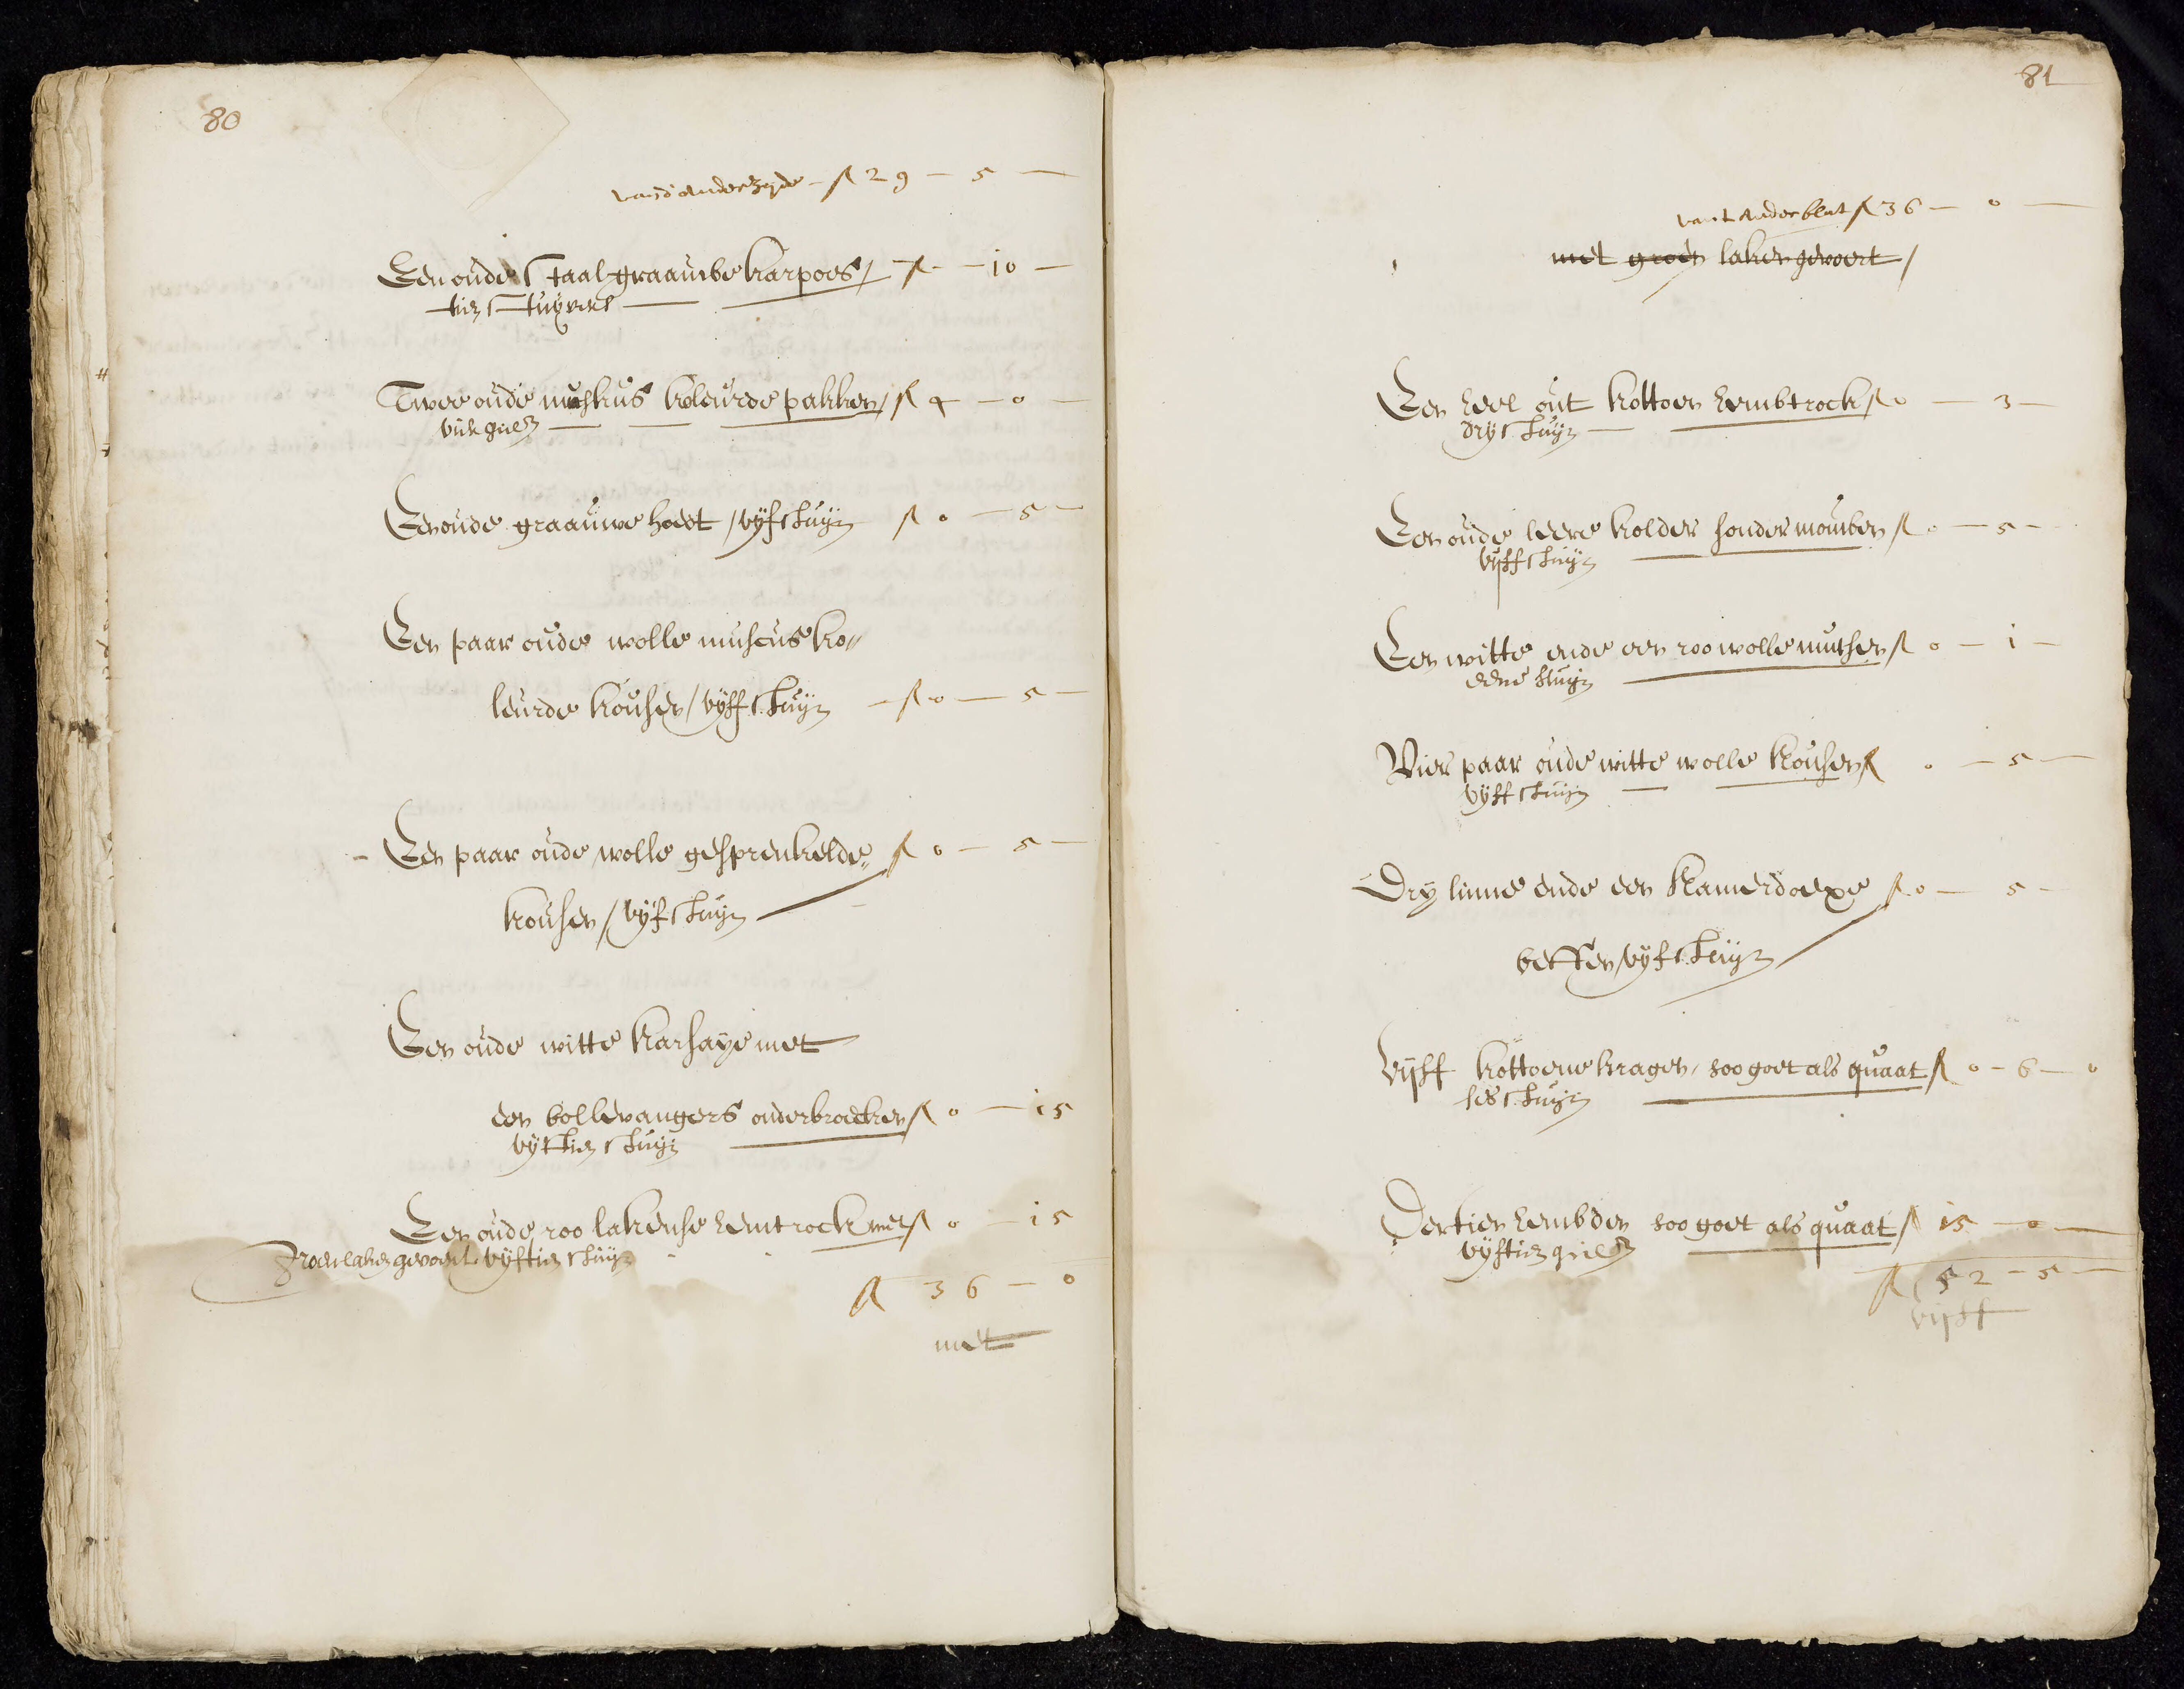 80
vand'anderzyde - ƒ 29 - 5 -
Een oude Staal graauwbe karpoes / - ƒ - - 10 -
tien stuyvers
Twee oude muskus koleurde pakken / ƒ 4 - 0 -
vier guld
Een oude graauwe hoet / vijf stuyv ƒ 0 - 5 -
Een paar oude wolle muscus ko„
leurde kousen / vyff stuyv - ƒ 0 - 5 -
- Een paar oude wolle gesprenkelde„ ƒ 0 - 5 -
kousen / vyf stuyv
Een oude witte karsaye met
een bollevangers onderbroeken ƒ 0 - 15
vyftien stuyv
Een oude roo lakense hemtrock met ƒ 0 - 15
groen laken gevoert vyftien stuyv
ƒ 36 - 0
met
81
van t ander blat ƒ 36 - 0 -
met groen laken gevoert /
Een heel out kottoen hembtrock ƒ 0 - 3 -
dry stuyv
Een oude leere kolder sonder mouwben ƒ 0 - 5 -
vyff stuyv
Een witte ende een roo wolle mutsen ƒ 0 - 1 -
eene stuyv
Vier paar oude witte wolle kousen ƒ 0 - 5 -
vyff stuyv
Dry linne ende een kamerdoexe ƒ 0 - 5 -
beffen / vyf stuyv
Vijff kottoene kragen, soo goet als quaat ƒ 0 - 6 - 0
ses stuyv
Dertien hembden soo goet als quaat ƒ 15 - 0 -
vyftien guld
ƒ 52 - 5 -
vijff